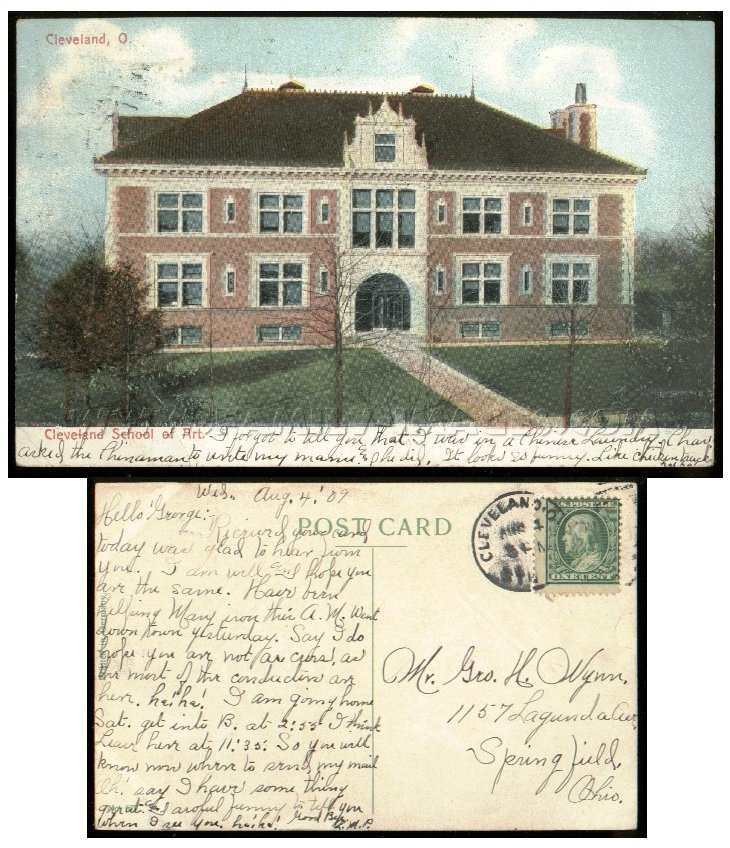 Cleveland, O.
Cleveland School of Art. I forgot to tell you that I was in a Chinese Laundry. I have
asked the Chinaman to write my name & he did. It looks so funny. Like chicken
Wed. Aug. 4, '09
Hello George:-
POST CARD
Received your card
today was glad to hear from
you. I am well & I hope you
are the same. Have been
helping Mary iron this A.M. Went
down town yesterday. Say I do
hope you are not as cross, as
the most of the conductors are
here. ha! ha! I am going home
Sat. get into B. at 2:55 I think
Leave here at 11:35. So you will
know now where to send my mail
Oh! say I have some thing
great & awful funny to tell you
when I see you. ha! ha! Good Bye
CLEVELAND, O.
U.S. POSTAGE
ONE CENT
Mr. Geo. H. Wynn.
1157 Lagunda Ave.
Springfield,
Ohio.